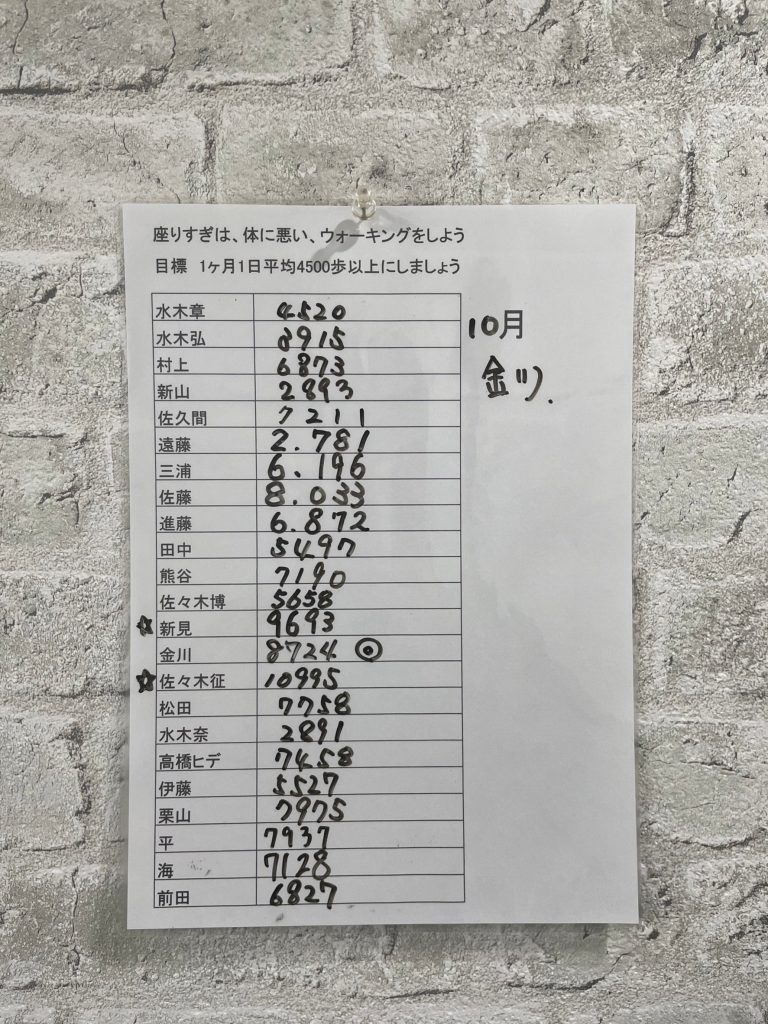 座りすぎは、体に悪い、ウォーキングをしよう
目標 1ヶ月1日平均4500歩以上にしましょう
10月
金ツ.
水木章 4520
水木弘 8915
村上 6873
新山 2893
佐久間 7211
遠藤 2.781
三浦 6.196
佐藤 8.033
進藤 6.872
田中 5497
熊谷 7190
佐々木博 5658
☆ 新見 9693
金川 8724 ◎
☆ 佐々木征 10995
松田 7758
水木奈 2891
高橋ヒデ 7458
伊藤 5527
栗山 7975
平 7937
海 7128
前田 6827